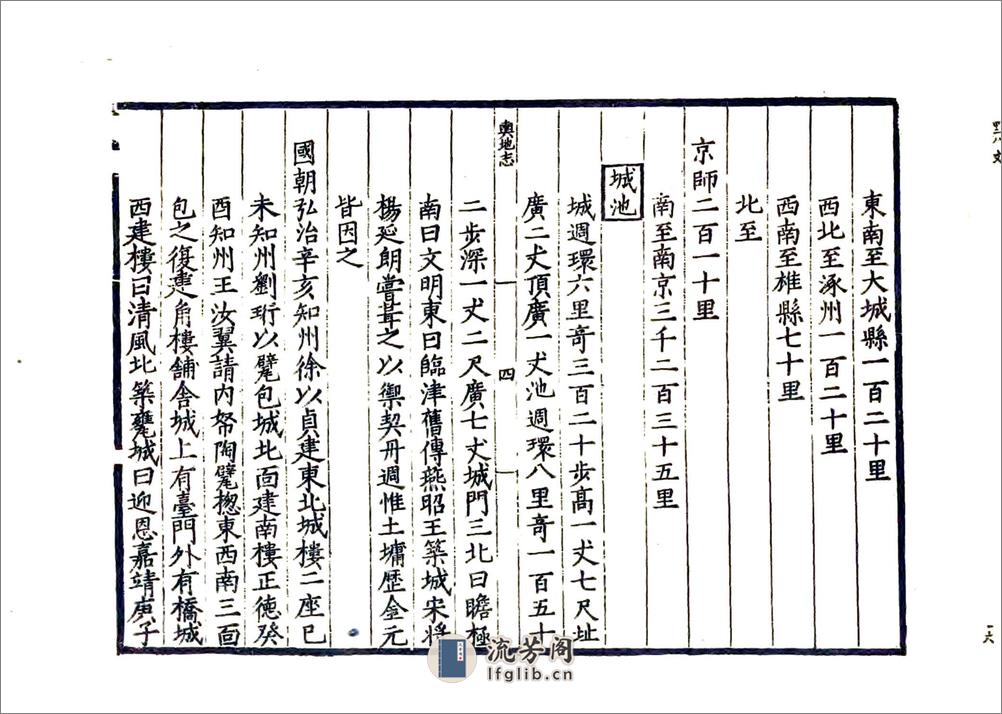 東南至大城縣一百二十里
西北至涿州一百二十里
西南至雄縣七十里
北至
京師二百一十里
南至南京三千二百三十五里
城池
城週環六里竒三百二十步高一丈七尺址
廣二丈頂廣一丈池週環八里竒一百五十
輿地志
四
二步深一丈二尺廣七丈城門三北曰瞻極
南曰文明東曰臨津舊傳燕昭王築城宋將
楊延朗嘗葺之以禦契丹週惟土墉歷金元
皆因之
國朝弘治辛亥知州徐以貞建東北城樓二座已
未知州劉珩以甓包城北面建南樓正德癸
酉知州王汝翼請內帑陶甓揔東西南三面
包之復建角樓舖舍城上有臺門外有橋城
西建樓曰清風北築甕城曰迎恩嘉靖庚子
流芳阁
lfglib.cn